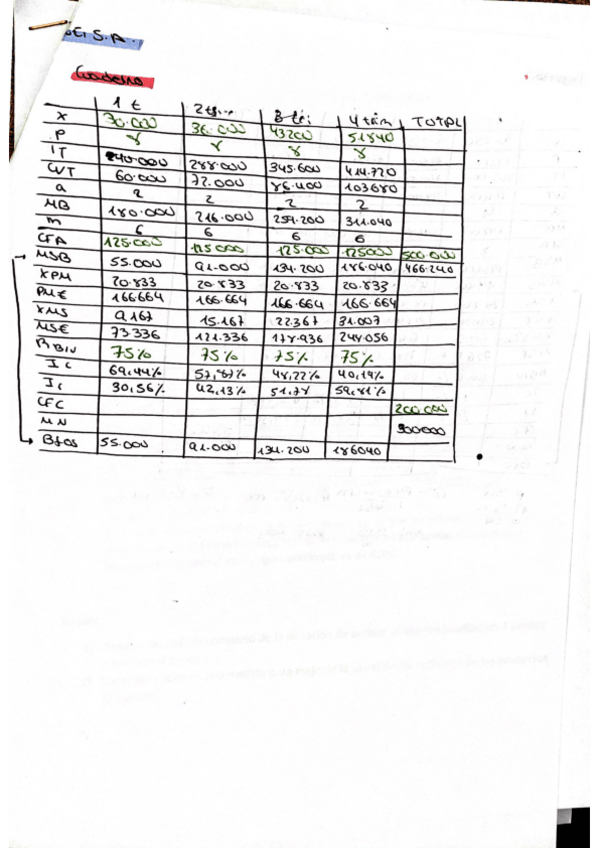 S.A.
Cuaderno
1 t 2 tri 3 tri 4 trim TOTAL
X 30.000 36.000 43200 51840
P 8 8 8 8
IT 240.000 288.000 345.600 414.720
CVT 60.000 72.000 86.400 103680
a 2 2 2 2
MB 180.000 216.000 259.200 311.040
m 6 6 6 6
CFA 125.000 125000 125.000 125000 500 000
MSB 55.000 91.000 134.200 186.040 466.240
XPM 20.833 20.833 20.833 20.833
PM€ 166.664 166.664 166.664 166.664
XMS 9.167 15.167 22.367 31.007
MS€ 73.336 121.336 178.936 248.056
75% 75% 75% 75%
69,44% 57,87% 48,22% 40,19%
30,56% 42,13% 51,78 59,81%
CFC 200.000
MN
Btos 55.000 91.000 134.200 186040